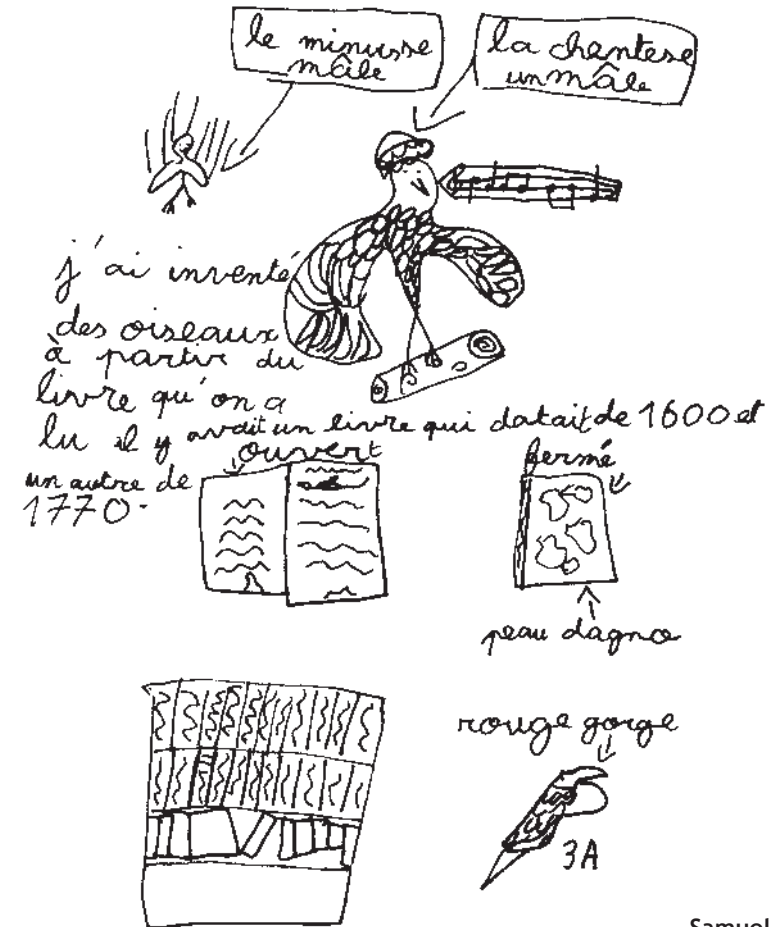 le minusse
mâle
la chantese
un mâle
j'ai inventé
des oiseaux
à partir du
livre qu'on a
lu il y avait un livre qui datait de 1600 et
un autre de
1770.
ouvert
fermé
peau dagno
rouge gorge
3A
Samuel